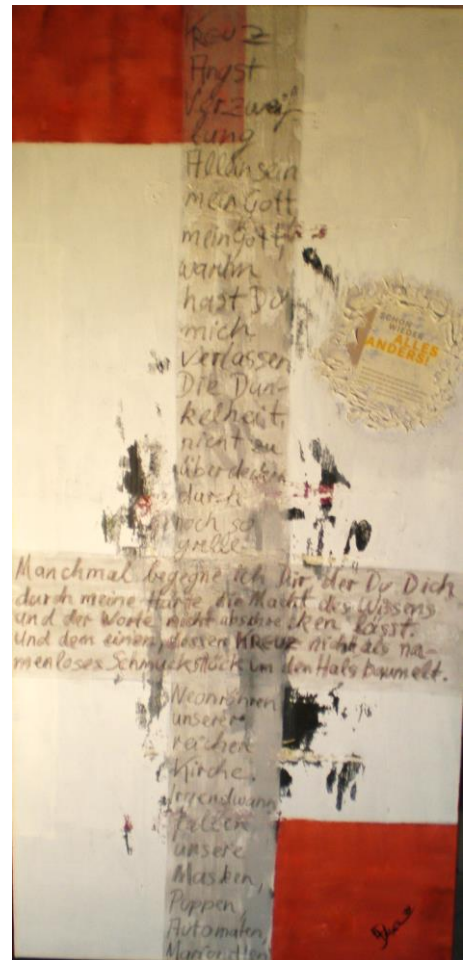 KREUZ
Angst
Verzweif
lung
Alleinsein
mein Gott,
mein Gott,
warum
hast Du
mich
verlassen
Die Dun-
kelheit,
nicht zu
überdecken
durch
noch so
grelle
SCHON
WIEDER
ALLES
ANDERS!
Manchmal begegne ich Dir, der Du Dich
durch meine Härte, die Macht des Wissens
und der Worte nicht abschrecken lässt.
Und dem einen, dessen KREUZ nicht als na-
menloses Schmuckstück um den Hals baumelt.
Neonröhren
unserer
reichen
Kirche.
Irgendwann
fallen
unsere
Masken,
Puppen,
Automaten,
Marionetten